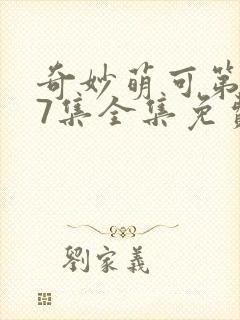 奇妙萌可第
7集全集免費
劉家義